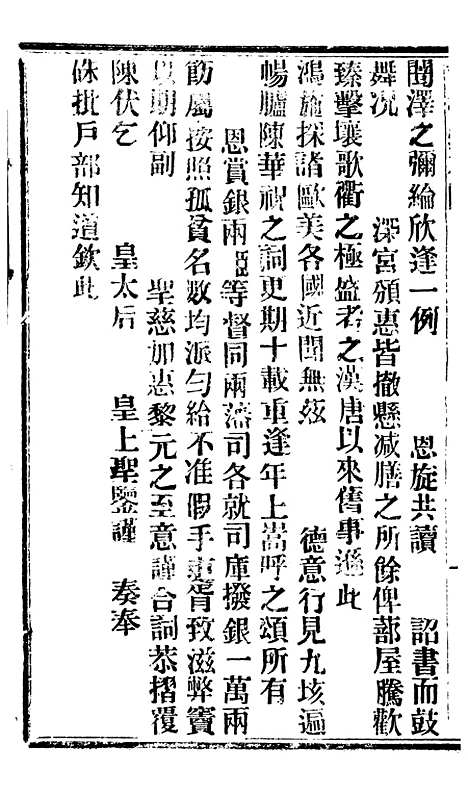 閭澤之彌綸欣逢一例 恩旋共讀 詔書而鼓
舞況 深宮頒惠皆撤懸减膳之所餘俾蔀屋騰歡
臻擊壤歌衢之極盛考之漢唐以來舊事遜此
鴻施探諸歐美各國近聞無茲 德意行見九垓遍
暢臚陳華祝之詞更期十載重逢年上嵩呼之頌所有
恩賞銀兩臣等督同兩藩司各就司庫撥銀一萬兩
飭屬按照孤貧名數均派勻給不准假手吏胥致滋弊竇
以期仰副 聖慈加惠黎元之至意謹合詞恭摺覆
陳伏乞 皇太后 皇上聖鑒謹 奏奉
硃批戶部知道欽此